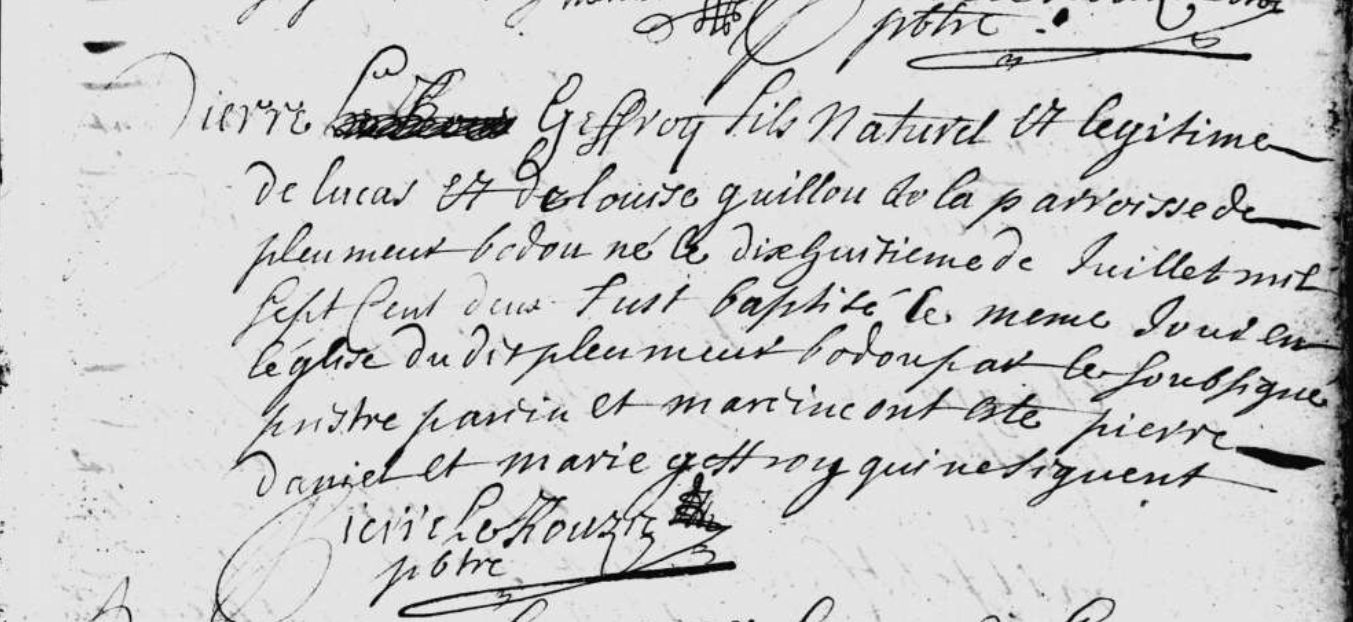 pbtre
Pierre Geffroy fils Naturel Et legitime
de lucas Et de louise guillou de la parroisse de
pleumeur bodou né le dixhuitieme de Juillet mil
sept Cent deux fust baptisé le meme Jour en
léglise du dit pleumeur bodou par le soubsigné
prestre parein et mareine ont este pierre
daniel et marie geffroy qui ne signent
Pierre Le Rouzic
pbtre